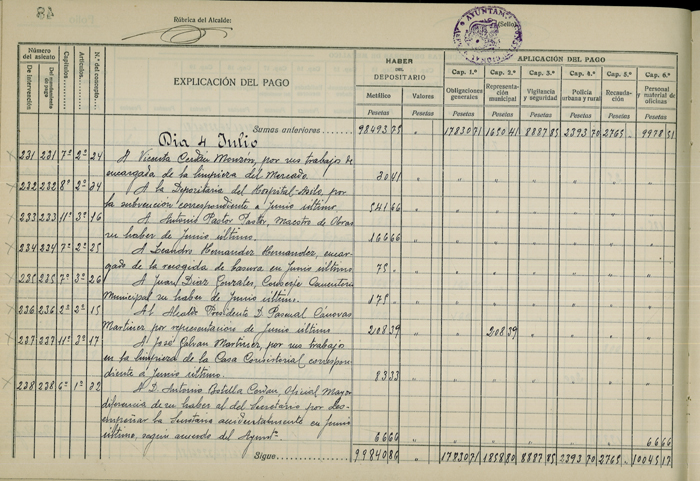 48
Rúbrica del Alcalde:
(Sello)
AYUNTAM
Número del asiento
De Intervención
Del mandamiento de pago
Capítulos
Artículos
N.º del concepto
EXPLICACIÓN DEL PAGO
HABER DEL DEPOSITARIO
Metálico
Valores
Pesetas Pesetas
APLICACIÓN DEL PAGO
Cap. 1.º Cap. 2.º Cap. 3.º Cap. 4.º Cap. 5.º Cap. 6.º
Obligaciones generales
Representación municipal
Vigilancia y seguridad
Policía urbana y rural
Recaudación
Personal y material de oficinas
Pesetas Pesetas Pesetas Pesetas Pesetas Pesetas
Sumas anteriores 98493 75 " 17830 71 1650 41 8887 85 2393 70 2765 " 9978 51
Dia 4 Julio
231 231 7º 2º 24 A Vicenta Cerdán Monzón, por sus trabajo de
encargada de la limpieza del Mercado. 30 41
232 232 8º 2º 34 A la Depositaria del Hospital-Asilo, por
la subvención correspondiente a Junio último 541 66
233 233 11º 3º 16 A Antonio Pastor Pastor, Maestro de Obras
su haber de Junio último. 166 66
234 234 7º 2º 25 A Leandro Hernandez Hernandez, encar-
gado de la recogida de basura en Junio último 75 "
235 235 7º 3º 26 A Juan Diaz Gonzales, Conserje Cementerio
Municipal su haber de Junio último. 175 "
236 236 2º 2º 15 Al Alcalde Presidente D. Pascual Cánovas
Martinez por representacion de Junio último 208 39 " " 208 39
237 237 11º 3º 17 A José Galvan Martinez, por sus trabajo
en la limpieza de la Casa Consistorial, correspon-
diente a Junio último. 83 33
238 238 6º 1º 32 A D. Antonio Botella Cerdan, Oficial Mayor
diferencia de su haber al del Secretario por des-
empeñar la Secretaria accidentalmente en Junio
último, según acuerdo del Ayuntº. 66 66 " " " " " " 66 66
Sigue 99840 86 17830 71 1858 80 8887 85 2393 70 2765 " 10045 17